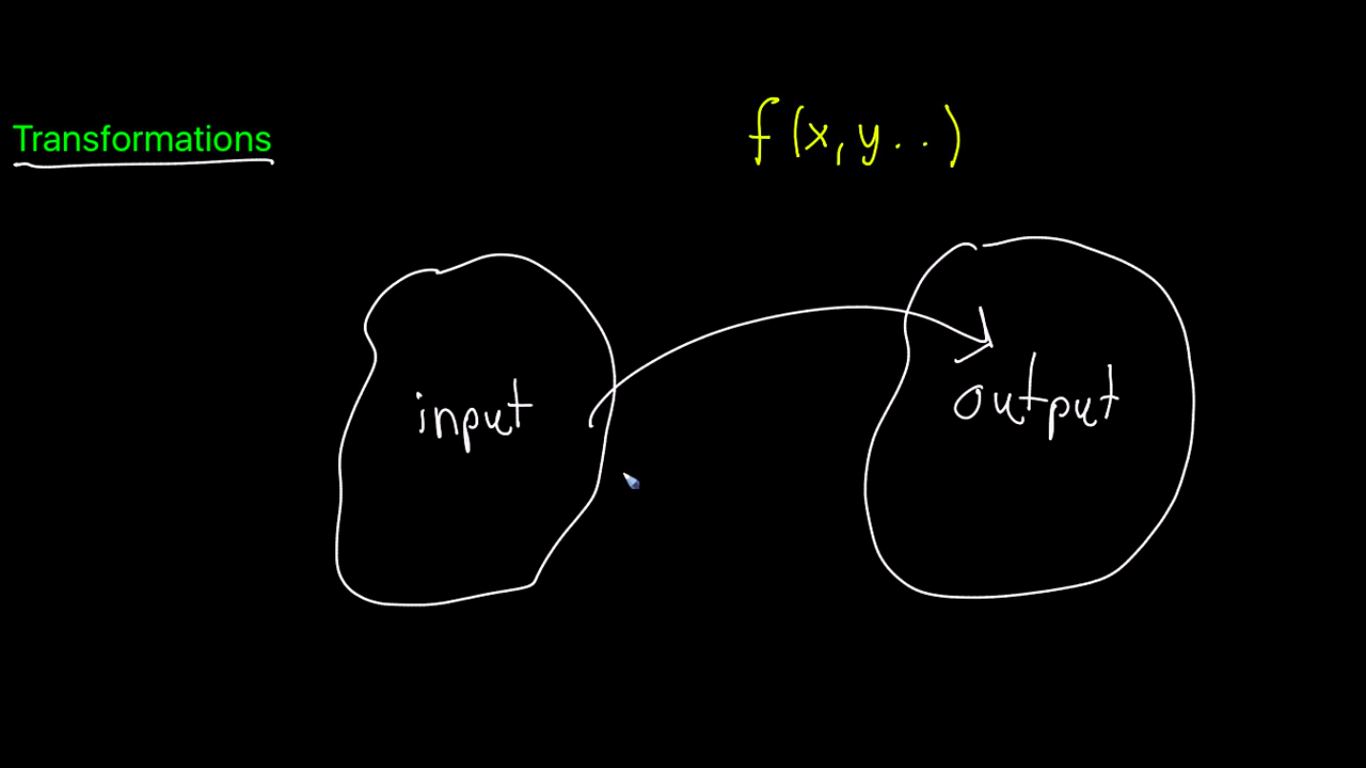 Transformations
f(x, y . . )
input
output